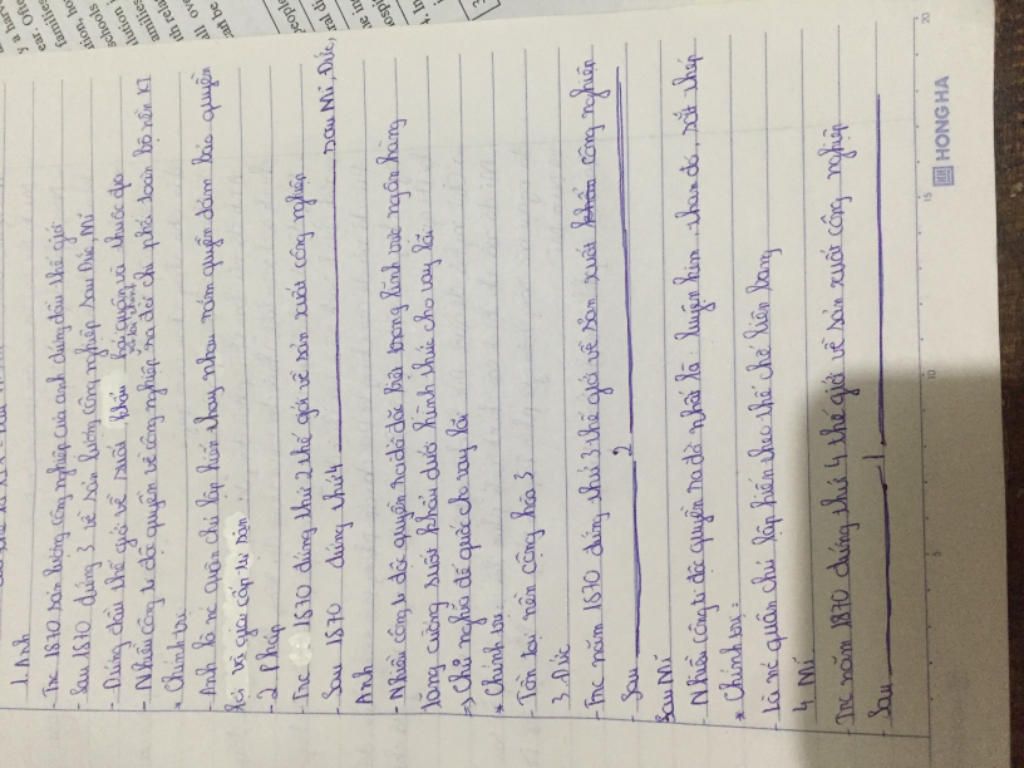 1. Anh
- Trc 1870 sản lượng công nghiệp của anh đứng đầu thế giới
- Sau 1870 đứng 3 về sản lượng công nghiệp sau Đức, Mĩ
- Đứng đầu thế giới về xuất khẩu tư bản, thương mại và thuộc địa
- Nhiều công ti độc quyền về công nghiệp ra đời chi phối toàn bộ nền KT
* Chính trị
- Anh là nc quân chủ lập hiến thay nhau nắm quyền đảm bảo quyền
lợi và giai cấp tư sản
- 2 Pháp
- Trc 1870 đứng thứ 2 thế giới về sản xuất công nghiệp
- Sau 1870 đứng thứ 4 sau Mĩ, Đức,
Anh
- Nhiều công ti độc quyền ra đời đặc biệt trong lĩnh vực ngân hàng
tăng cường xuất khẩu dưới hình thức cho vay lãi
=> Chủ nghĩa đế quốc cho vay lãi
* Chính trị:
- Tồn tại nền cộng hòa 3
3. Đức
- Trc năm 1870 đứng thứ 3 thế giới về sản xuất công nghiệp
- Sau 2
sau Mĩ
- Nhiều công ti độc quyền ra đời nhất là: luyện kim, than đá, sắt thép
* Chính trị:
- Là nc quân chủ lập hiến theo thể chế liên bang
4 Mĩ
- Trc năm 1870 đứng thứ 4 thế giới về sản xuất công nghiệp
- Sau 1
HONG HA
5
10
15
20